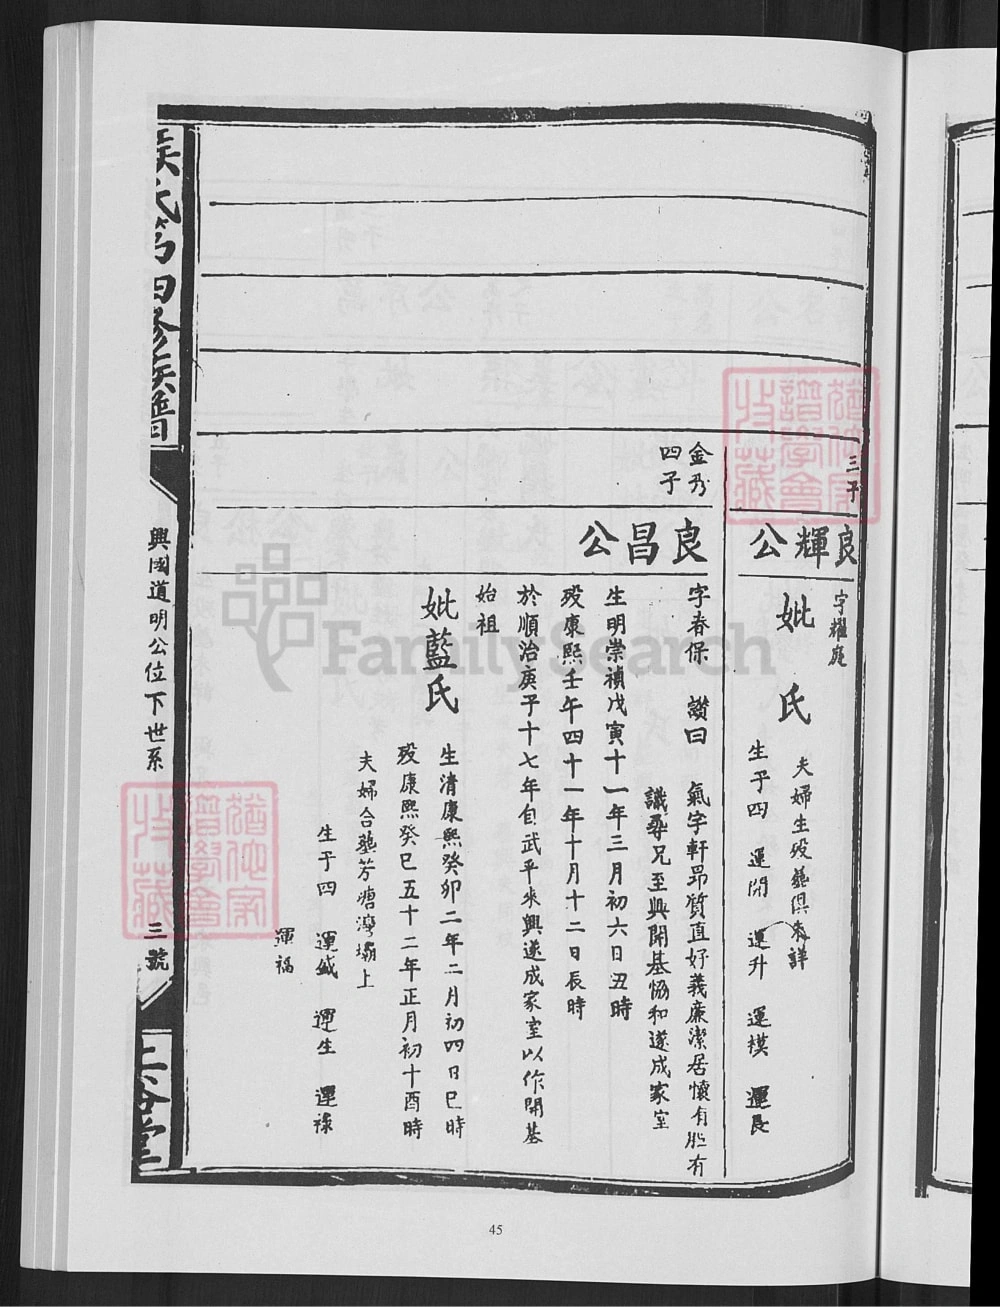 三子
良輝公
字耀庭
妣 氏
夫婦生歿葬俱未詳
生子四 運開 運升 運模 運長
金乃
四子
良昌公
字春保 讚曰 氣宇軒昂質直好義廉潔居懷有胆有
識尋兄至興開基協和遂成家室
生明崇禎戊寅十一年三月初六日丑時
歿康熙壬午四十一年十月十二日長時
於順治庚子十七年自武平來興遂成家室以作開基
始祖
妣藍氏
生清康熙癸卯二年二月初四日巳時
歿康熙癸巳五十二年正月初十酉時
夫婦合葬芳塘灣壩上
生子四 運盛 運生 運祿
運福
侯氏第四修族譜
興國道明公位下世系
三號
上谷堂
45
FamilySearch
譜學會